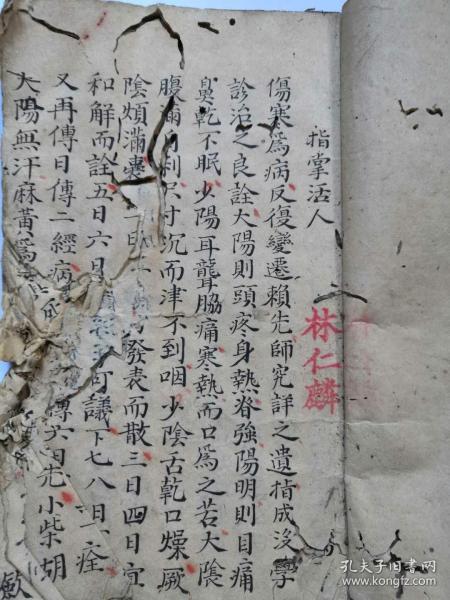 指掌活人
林仁麟
傷寒為病反復變遷賴先師究詳之遺指成沒學
診治之良詮大陽則頭疼身熱脊強陽明則目痛
鼻乾不眠少陽耳聾脇痛寒熱而口為之苦大陰
腹滿自利尺寸沉而津不到咽少陰舌乾口燥厥
陰煩滿囊 發表而散三日四日宜
和解而詮五日六日 可議下七八日 痊
又再傳日傳二經病 傳六日先小柴胡
大陽無汗麻黃為
敏
孔夫子旧书网
book.kongfz.com